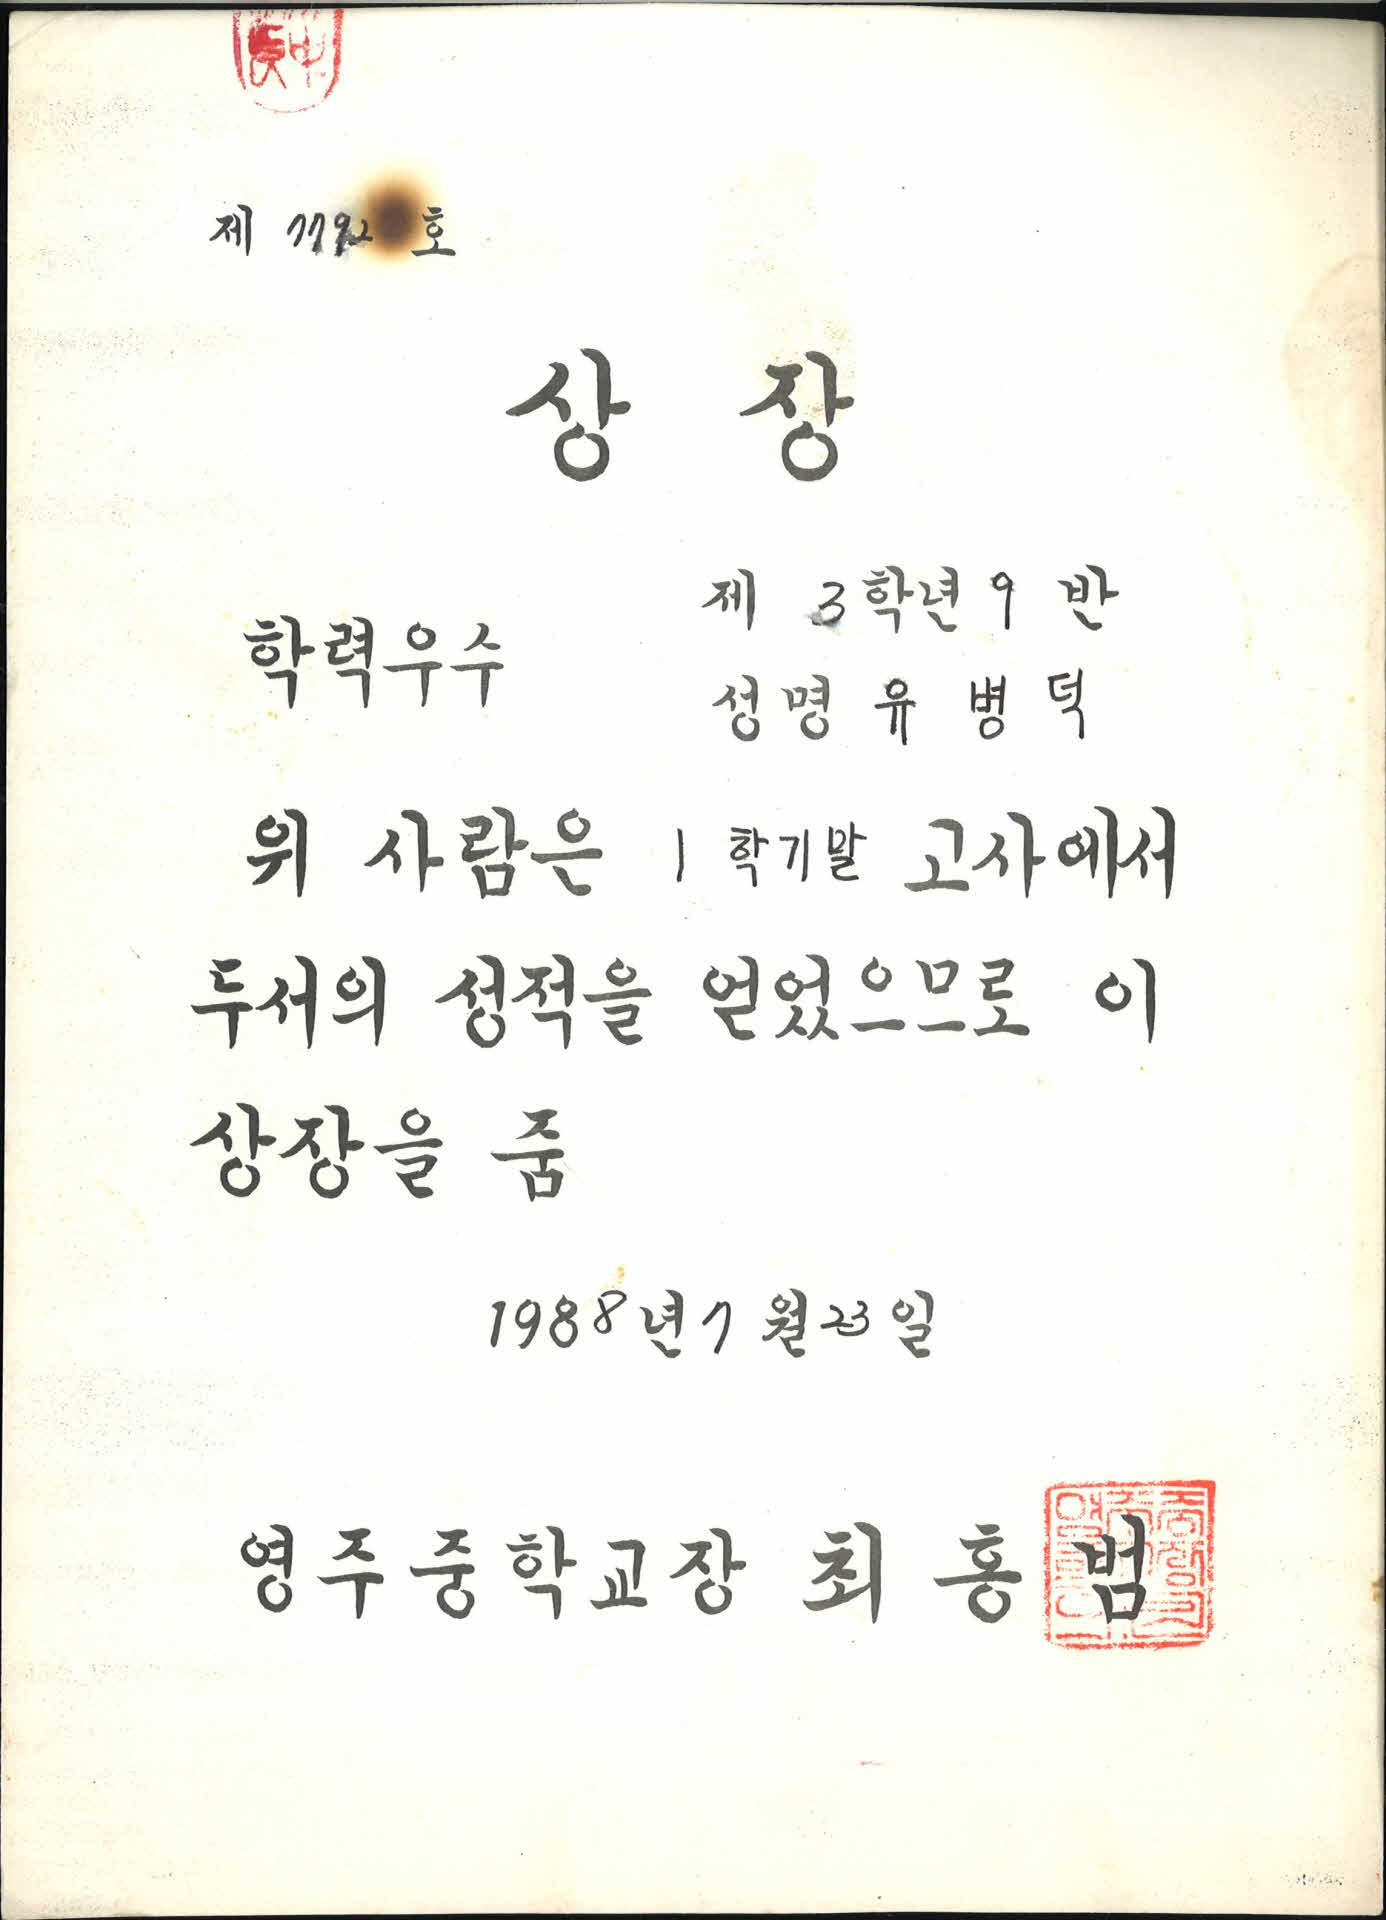 제 7792 호
상 장
제 3학년 9 반
학력우수
성명 유 병 덕
위 사람은 1 학기말 고사에서
두서의 성적을 얻었으므로 이
상장을 줌
1988년 7월 23일
영주중학교장 최 홍 범